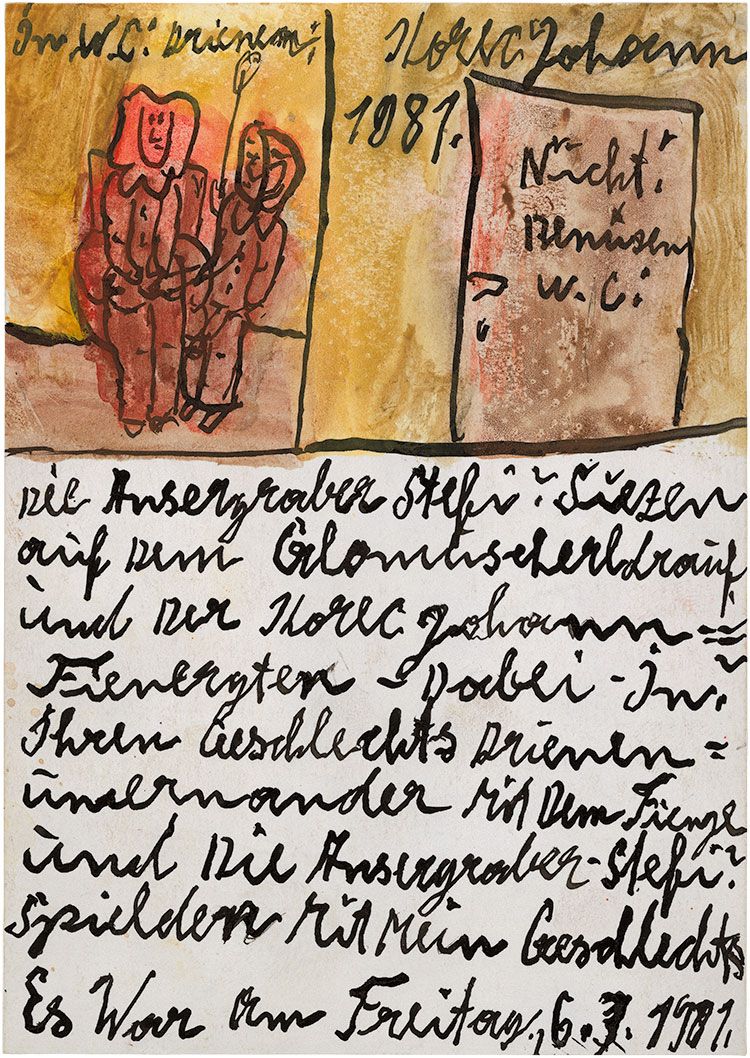 In W.C: Drienen:
Korec Johann
1981.
Nicht:
Benüsen
W. C:
Die Ansergraber Stefi? Siezen
auf Dem Glomuscherl drauf
und Der Korec Johann =
Fienergten - Dabei - In?
Ihren Geschlechts Drienen =
unernander Mit Dem Fienge
und Die Ansergraber-Stefi?
Spielden Mit Mein Geschlechts
Es War Am Freitag, 6.3. 1981.